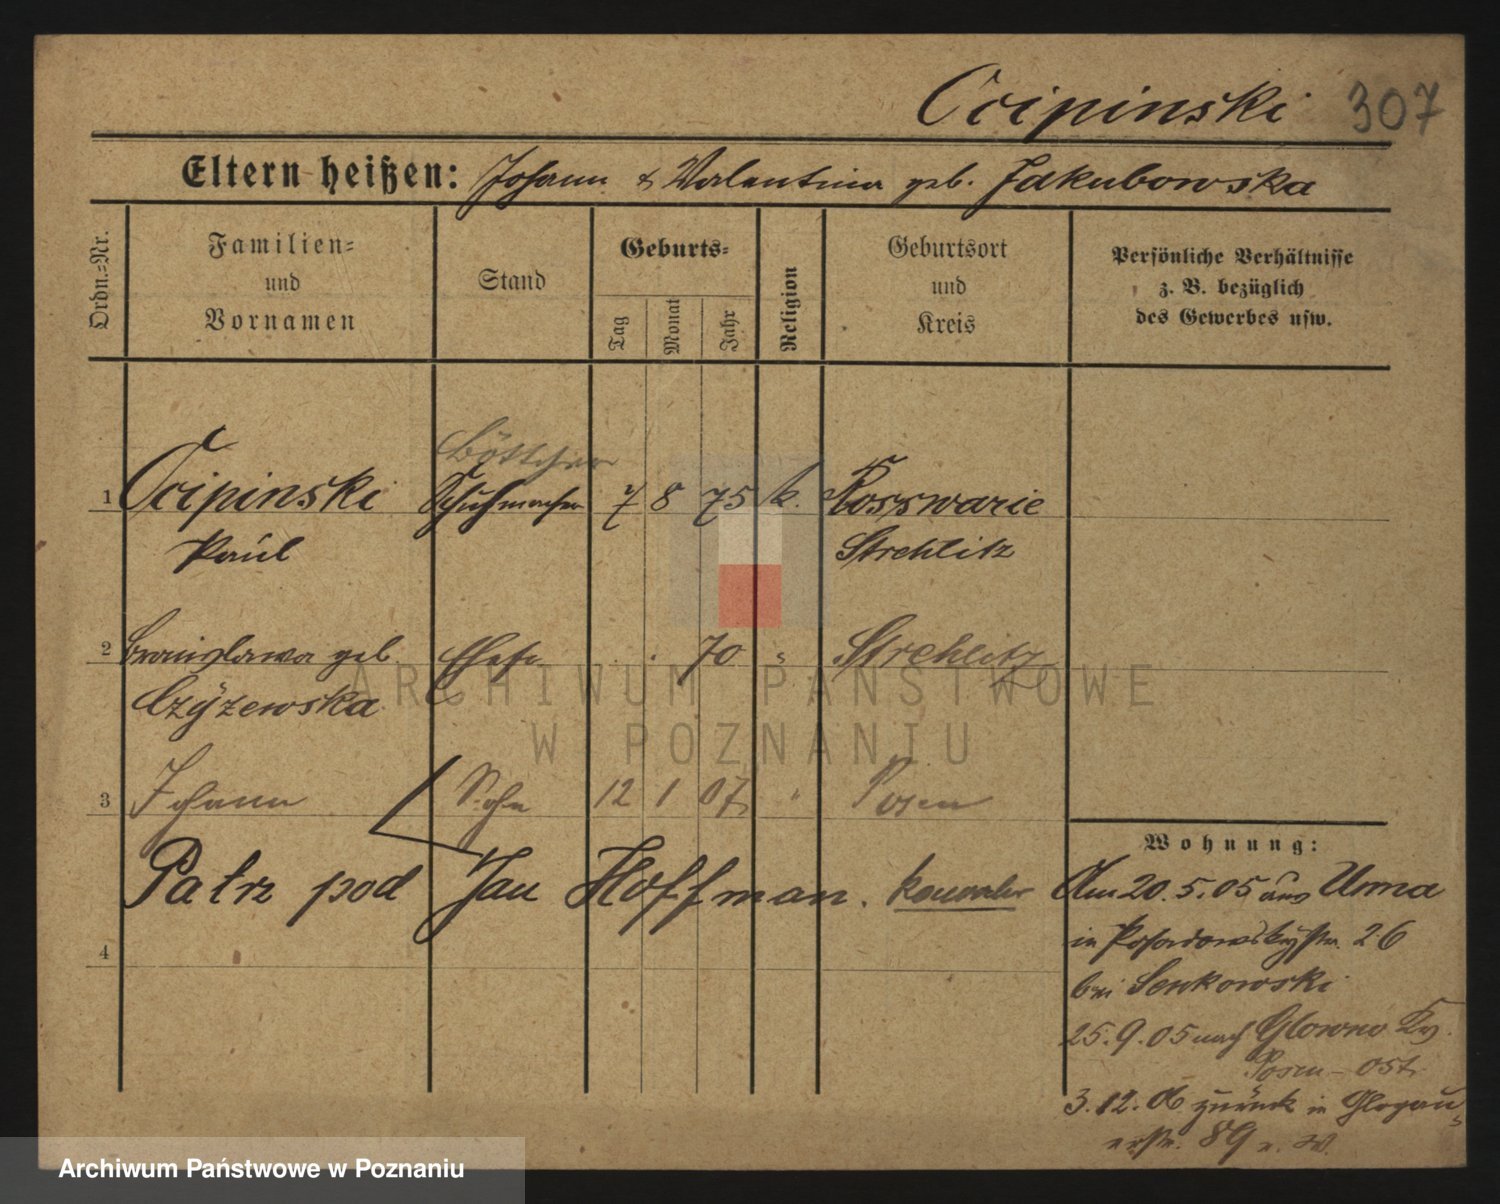 Ocipinski 307
Eltern heißen: Johann & Valentina geb. Jakubowska
Ordn.=Nr.
Familien=
und
Vornamen
Stand
Geburts=
Tag
Monat
Jahr
Religion
Geburtsort
und
Kreis
Persönliche Verhältnisse
z. B. bezüglich
des Gewerbes usw.
Böttcher
1 Ocipinski Schuhmacher 7 8 75 k. Rosswarie
Paul Strehlitz
2 Bronislawa geb Ehefr. 70 " Strehlitz
Czÿzewska
3 Johann Sohn 12 1 07 " Posen
Patrz pod Jan Hoffman.
4
Wohnung:
Am 20.5.05 aus Unna
in Posadowskystr. 26
bei Senkowski
25.9.05 nach Glowno Kr.
Posen-Ost.
3.12.06 zurück in Glogau=
erstr. 89
ARCHIWUM PAŃSTWOWE
W POZNANIU
Archiwum Państwowe w Poznaniu